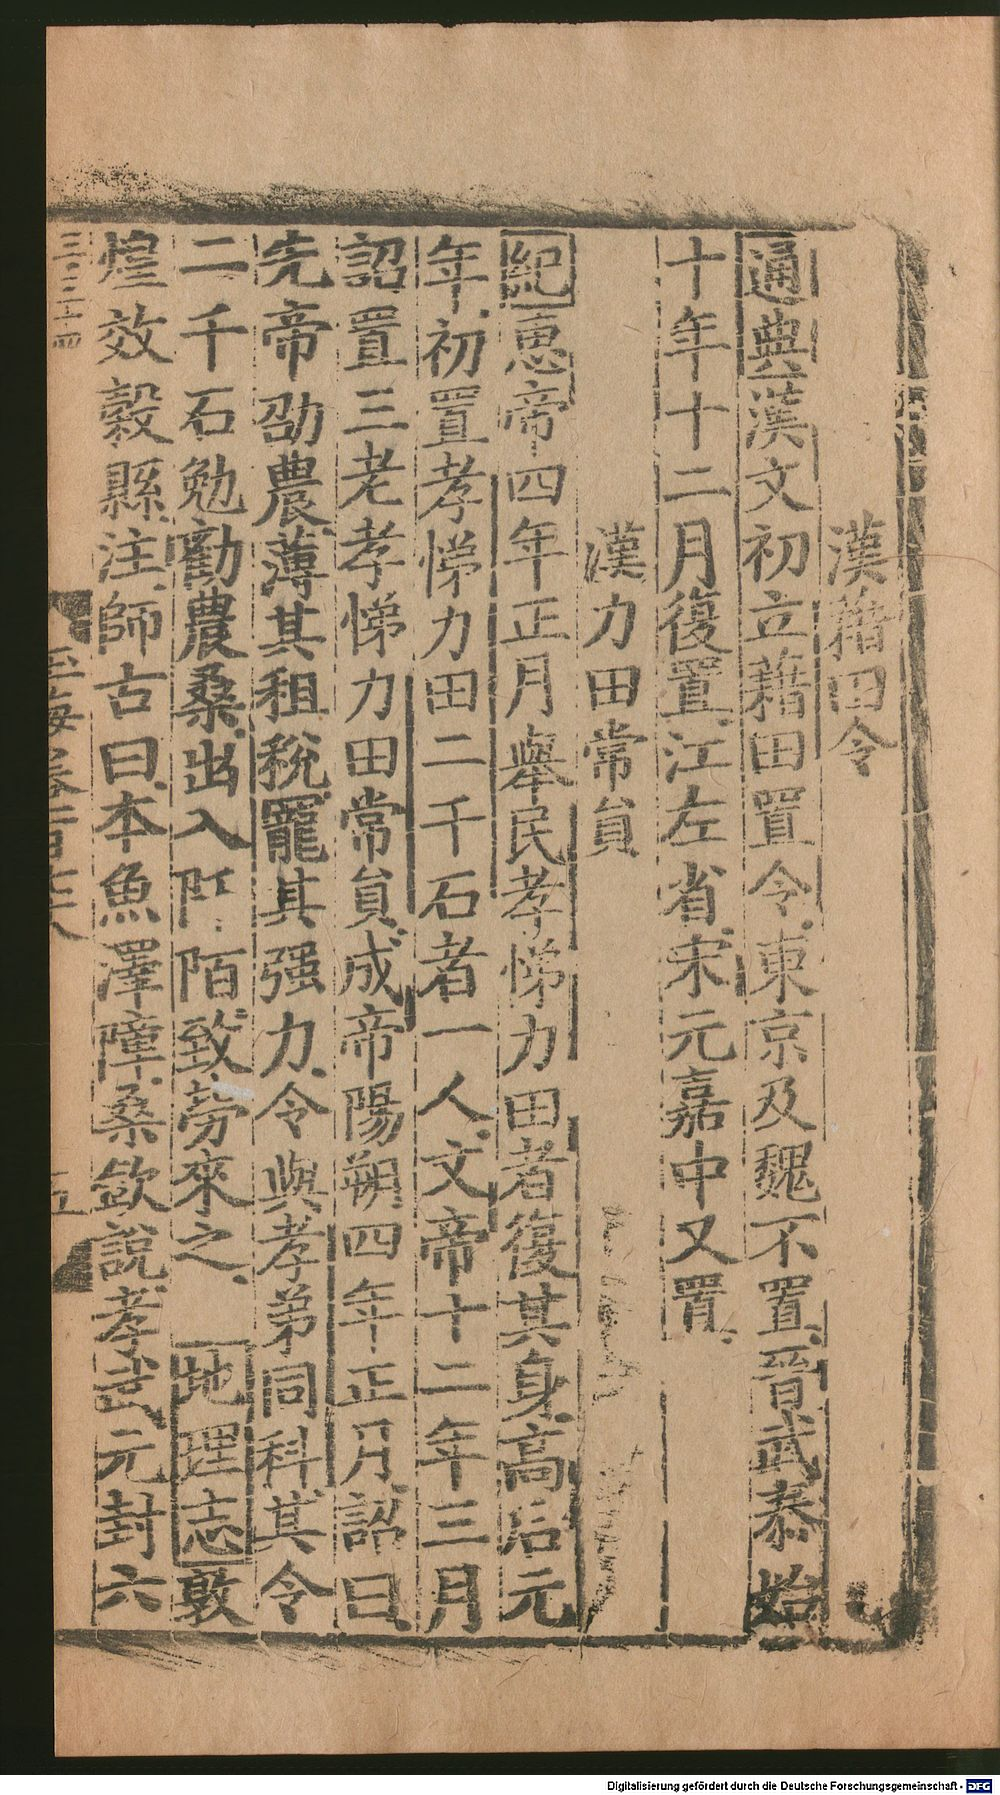 漢籍田令
通典漢文初立藉田置令東京及魏不置晉武泰始
十年十二月復置江左省宋元嘉中又置
漢力田常員
紀惠帝四年正月舉民孝悌力田者復其身高后元
年初置孝悌力田二千石者一人文帝十二年三月
詔置三老孝悌力田常員成帝陽朔四年正月詔曰
先帝劭農薄其租稅寵其强力令與孝弟同科其令
二千石勉勸農桑出入阡陌致勞來之 地理志敦
煌效穀縣注師古曰本魚澤障桑欽說孝武元封六
三·三十四
玉海卷一百七十八
Digitalisierung gefördert durch die Deutsche Forschungsgemeinschaft - DFG